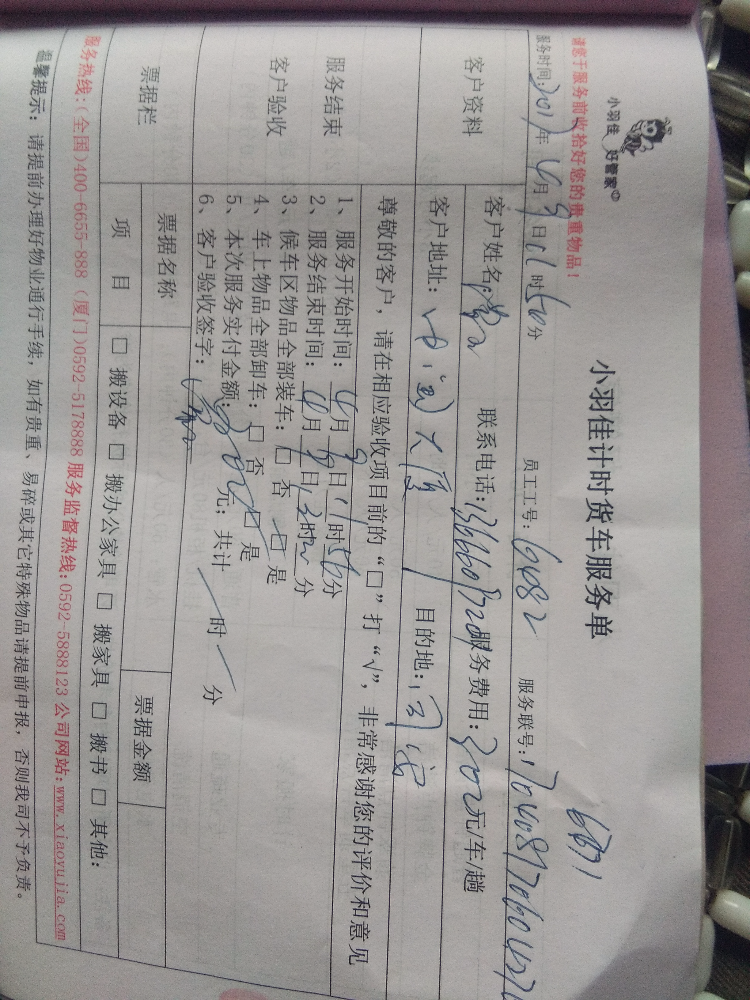 小羽佳 好管家
小羽佳计时货车服务单
6671
请您于服务前收拾好您的贵重物品！
服务时间：2017年4月9日11时50分 员工工号：6082 服务联号：
客户资料
客户姓名： 联系电话： 服务费用：300元/车/趟
客户地址： 目的地：同安
尊敬的客户，请在相应验收项目前的“□”打“√”，非常感谢您的评价和意见
服务结束
客户验收
1、服务开始时间：4月9日11时50分
2、服务结束时间：4月9日12时 分
3、候车区物品全部装车：□ 否 □ 是
4、车上物品全部卸车：□ 否 □ 是
5、本次服务实付金额：300元；共计 / 时 / 分
6、客户验收签字：
票据栏 票据名称 票据金额
项 目 □ 搬设备 □ 搬办公家具 □ 搬家具 □ 搬书 □ 其他：
服务热线：(全国)400-6655-888 (厦门)0592-5178888 服务监督热线：0592-5888123 公司网站：www.xiaoyujia.com
温馨提示：请提前办理好物业通行手续，如有贵重、易碎或其它特殊物品请提前申报，否则我司不予负责。